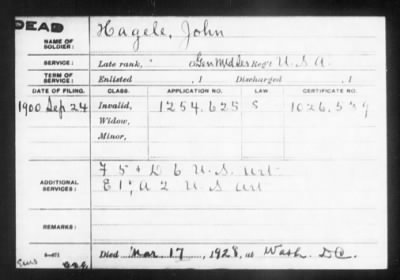 DEAD
NAME OF SOLDIER: Hagele, John
SERVICE: Late rank, Gen Med Ser Reg't U.S.A.
TERM OF SERVICE: Enlisted , 1 Discharged , 1
DATE OF FILING. CLASS. APPLICATION NO. LAW CERTIFICATE NO.
1900 Sep. 24 Invalid, 1254.625 S 1026.539
Widow,
Minor,
ADDITIONAL SERVICES: F 5 & D 6 U.S. Art
E 1; A 2 U S Art
REMARKS:
Died Mar 17, 1928, at Wash. D.C.